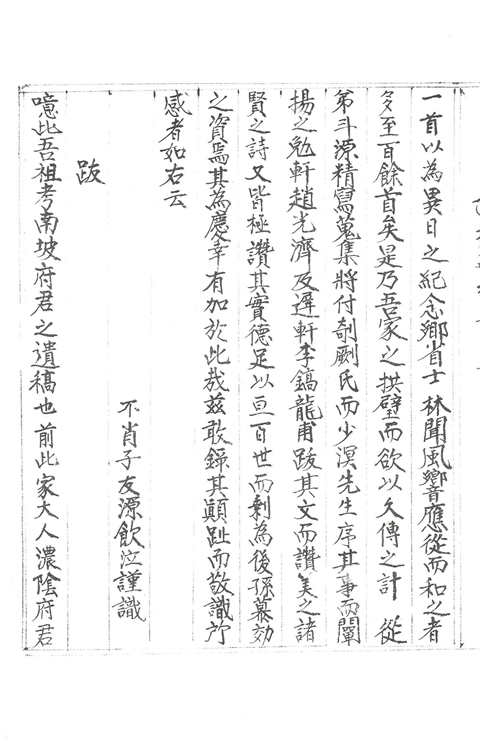 一首以為異日之紀念鄉省士林聞風響應從而和之者
多至百餘首矣是乃吾家之拱璧而欲以久傳之計 從
弟斗源精寫蒐集將付剞劂氏而少溟先生序其事而闡
揚之勉軒趙光濟及遲軒李鎬龍甫跋其文而讚美之諸
賢之詩又皆極讚其實德足以亘百世而剩為後孫慕効
之資焉其為慶幸有加於此哉玆敢錄其顛趾而敬識所
感者如右云
不肖子友源飲泣謹識
跋
噫此吾祖考南坡府君之遺稿也前此家大人濃陰府君